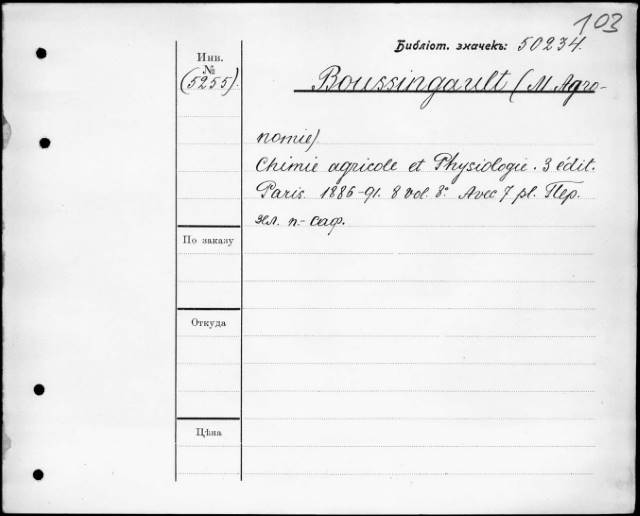 103
Библіот. значекъ: 50234
Инв.
№
(5255).
Boussingault (M Agro-
nomie)
Chimie agricole et Physiologie. 3 édit.
Paris. 1886-91. 8 vol. 8º Avec 7 pl. Пер.
зел. п.- саф.
По заказу
Откуда
Цѣна